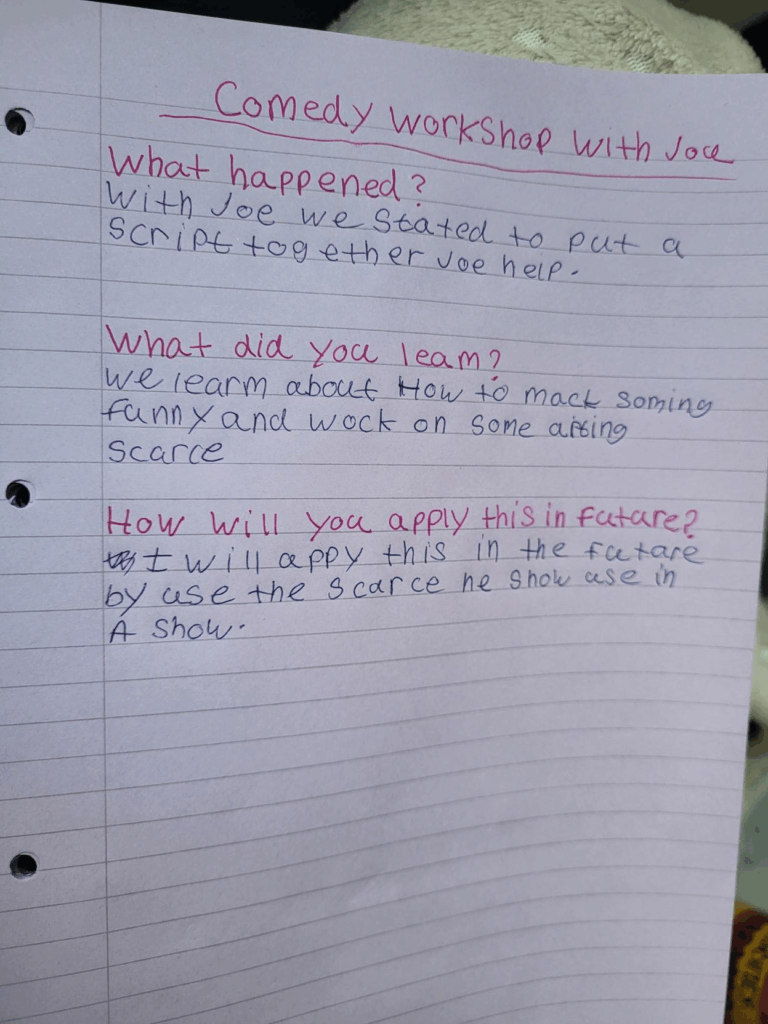 Comedy Workshop With Joe
What happened?
With Joe we stated to put a
Script together Joe help.
What did you learn?
we learm about How to mack soming
funny and wock on some aiting
scarce
How will you apply this in future?
I will appy this in the future
by use the scarce he show use in
A show.